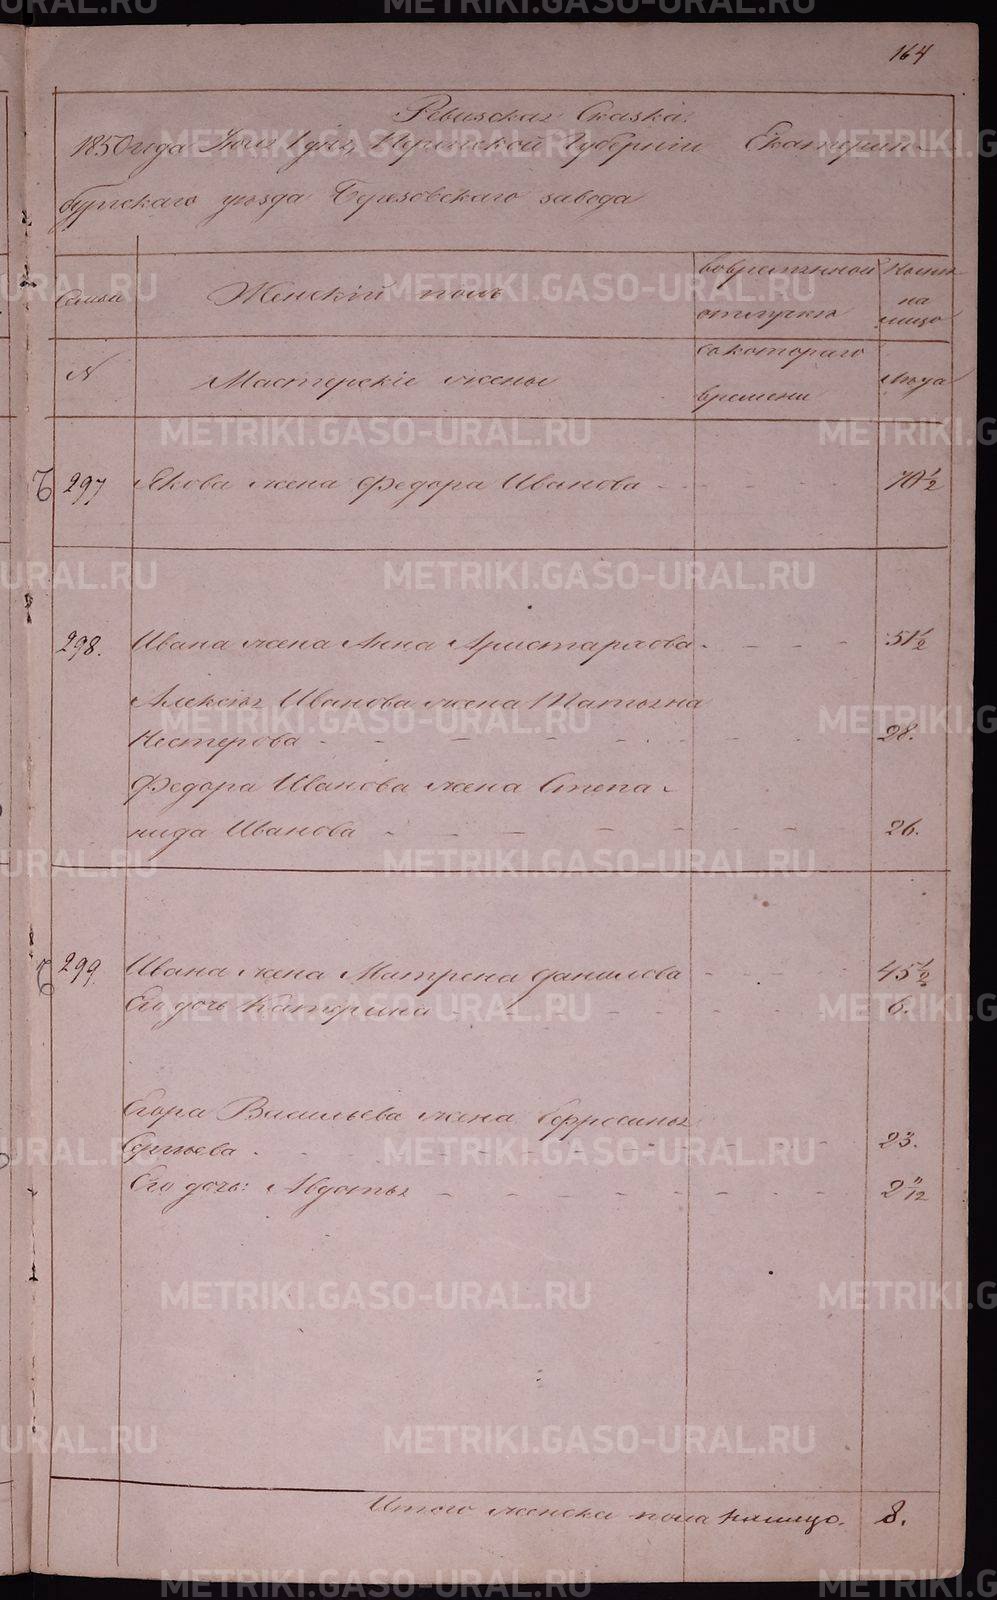 164
Ревизская Сказка.
1850 года Іюля 1 дня, Пермской Губерніи Екатерин-
бургскаго уезда Березовскаго завода
Семьи Женскій полъ во временной отлучке Ныне на лицо
N Мастерскіе жены со котораго времени лета
297 Якова жена Федора Иванова - - - - 70 1/2
298. Ивана жена Анна Аристархова - - - 51 1/2
Алексея Иванова жена Татьяна
Нестерова - - - - - - 28.
Федора Иванова жена Степа-
нида Иванова - - - - - - 26.
299 Ивана жена Матрена Данилова - - - - 45 1/2
Его дочь Катерина - - - - - - 6.
Егора Васильева жена Ефросинья
Сергеева - - - - - - 23.
Его дочь: Авдотья - - - - - - 2 11/12
Итого женска пола налицо. 8.
METRIKI.GASO-URAL.RU